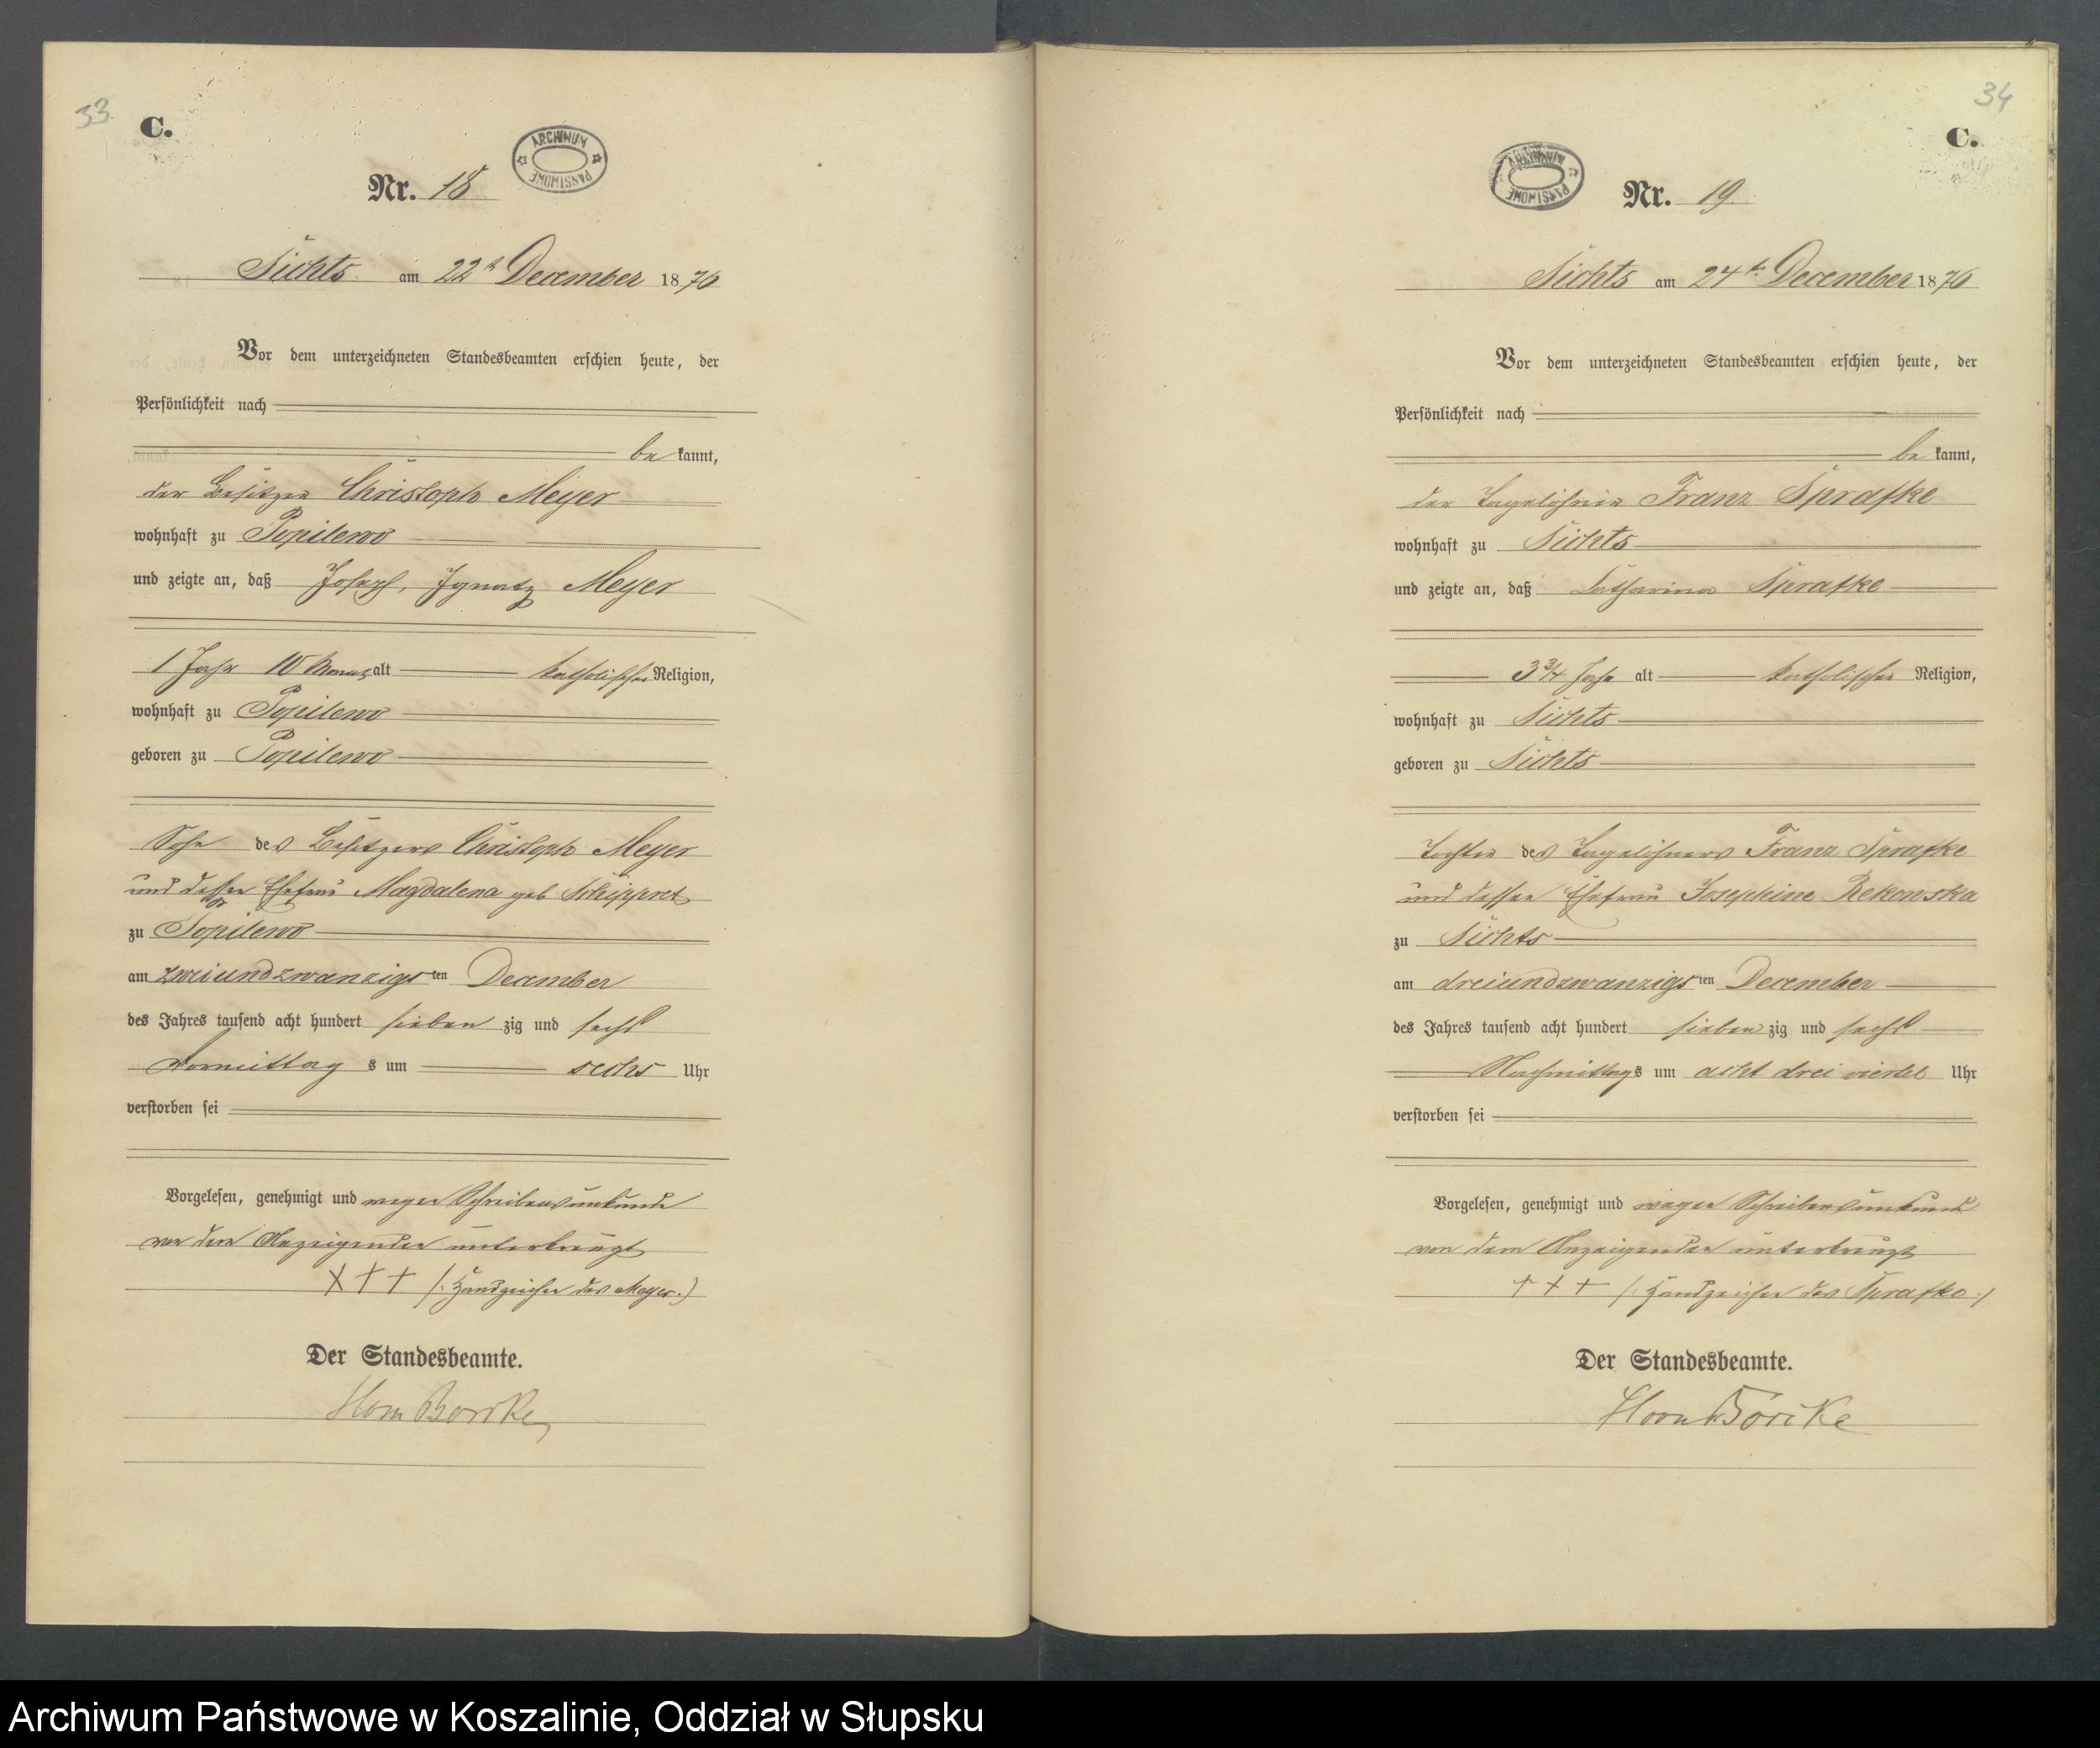 33
C.
ARCHIWUM PAŃSTWOWE
Nr. 18
Sichts am 22t December 1876
Vor dem unterzeichneten Standesbeamten erschien heute, der
Persönlichkeit nach
be kannt,
der Besitzer Christoph Meyer
wohnhaft zu Popilewo
und zeigte an, daß Joseph, Ignatz Meyer
1 Jahr 10 Monat alt katholischer Religion,
wohnhaft zu Popilewo
geboren zu Popilewo
Sohn des Besitzers Christoph Meyer
und dessen Ehefrau Magdalena geb
zu Popilewo
am zweiundzwanzigsten December
des Jahres tausend acht hundert sieben zig und sechs
Vormittag s um sechs Uhr
verstorben sei
Vorgelesen, genehmigt und wegen Schreibensunkunde
von dem Anzeigenden unterkreuzt
XXX /: Handzeichen des Meyer :)
Der Standesbeamte.
34
C.
ARCHIWUM PAŃSTWOWE
Nr. 19.
Sichts am 24t December 1876
Vor dem unterzeichneten Standesbeamten erschien heute, der
Persönlichkeit nach
be kannt,
der Tagelöhner Franz Sprafke
wohnhaft zu Sichts
und zeigte an, daß Catharina Sprafke
3 3/4 Jahr alt katholischer Religion,
wohnhaft zu Sichts
geboren zu Sichts
Tochter des Tagelöhners Franz Sprafke
und dessen Ehefrau Josephine Rekowska
zu Sichts
am dreiundzwanzigsten December
des Jahres tausend acht hundert sieben zig und sechs
Nachmittags um acht drei viertel Uhr
verstorben sei
Vorgelesen, genehmigt und wegen Schreibensunkunde
von dem Anzeigenden unterkreuzt
+++ /: Handzeichen des Sprafke :/
Der Standesbeamte.
Archiwum Państwowe w Koszalinie, Oddział w Słupsku